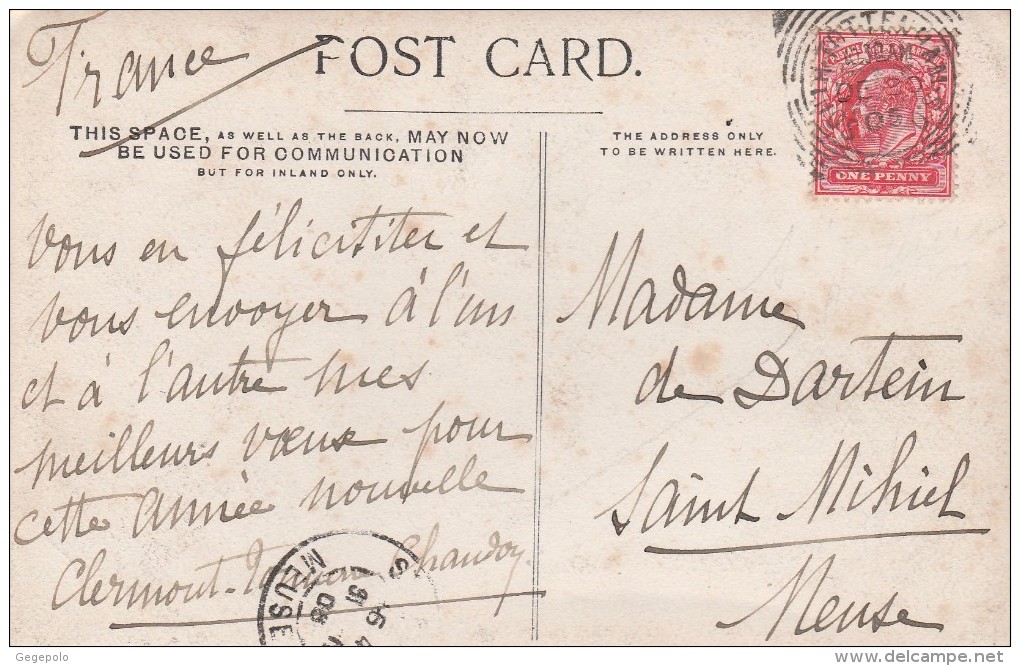 France
POST CARD.
THIS SPACE, AS WELL AS THE BACK, MAY NOW
BE USED FOR COMMUNICATION
BUT FOR INLAND ONLY.
THE ADDRESS ONLY
TO BE WRITTEN HERE.
POSTAGE
ONE PENNY
Vous en félicititer et
vous envoyer à l'un
et à l'autre mes
meilleurs vœux pour
cette année nouvelle
Clermont-
MEUSE
Madame
de Dartein
Saint Mihiel
Meuse
Gegepolo
delcampe.net